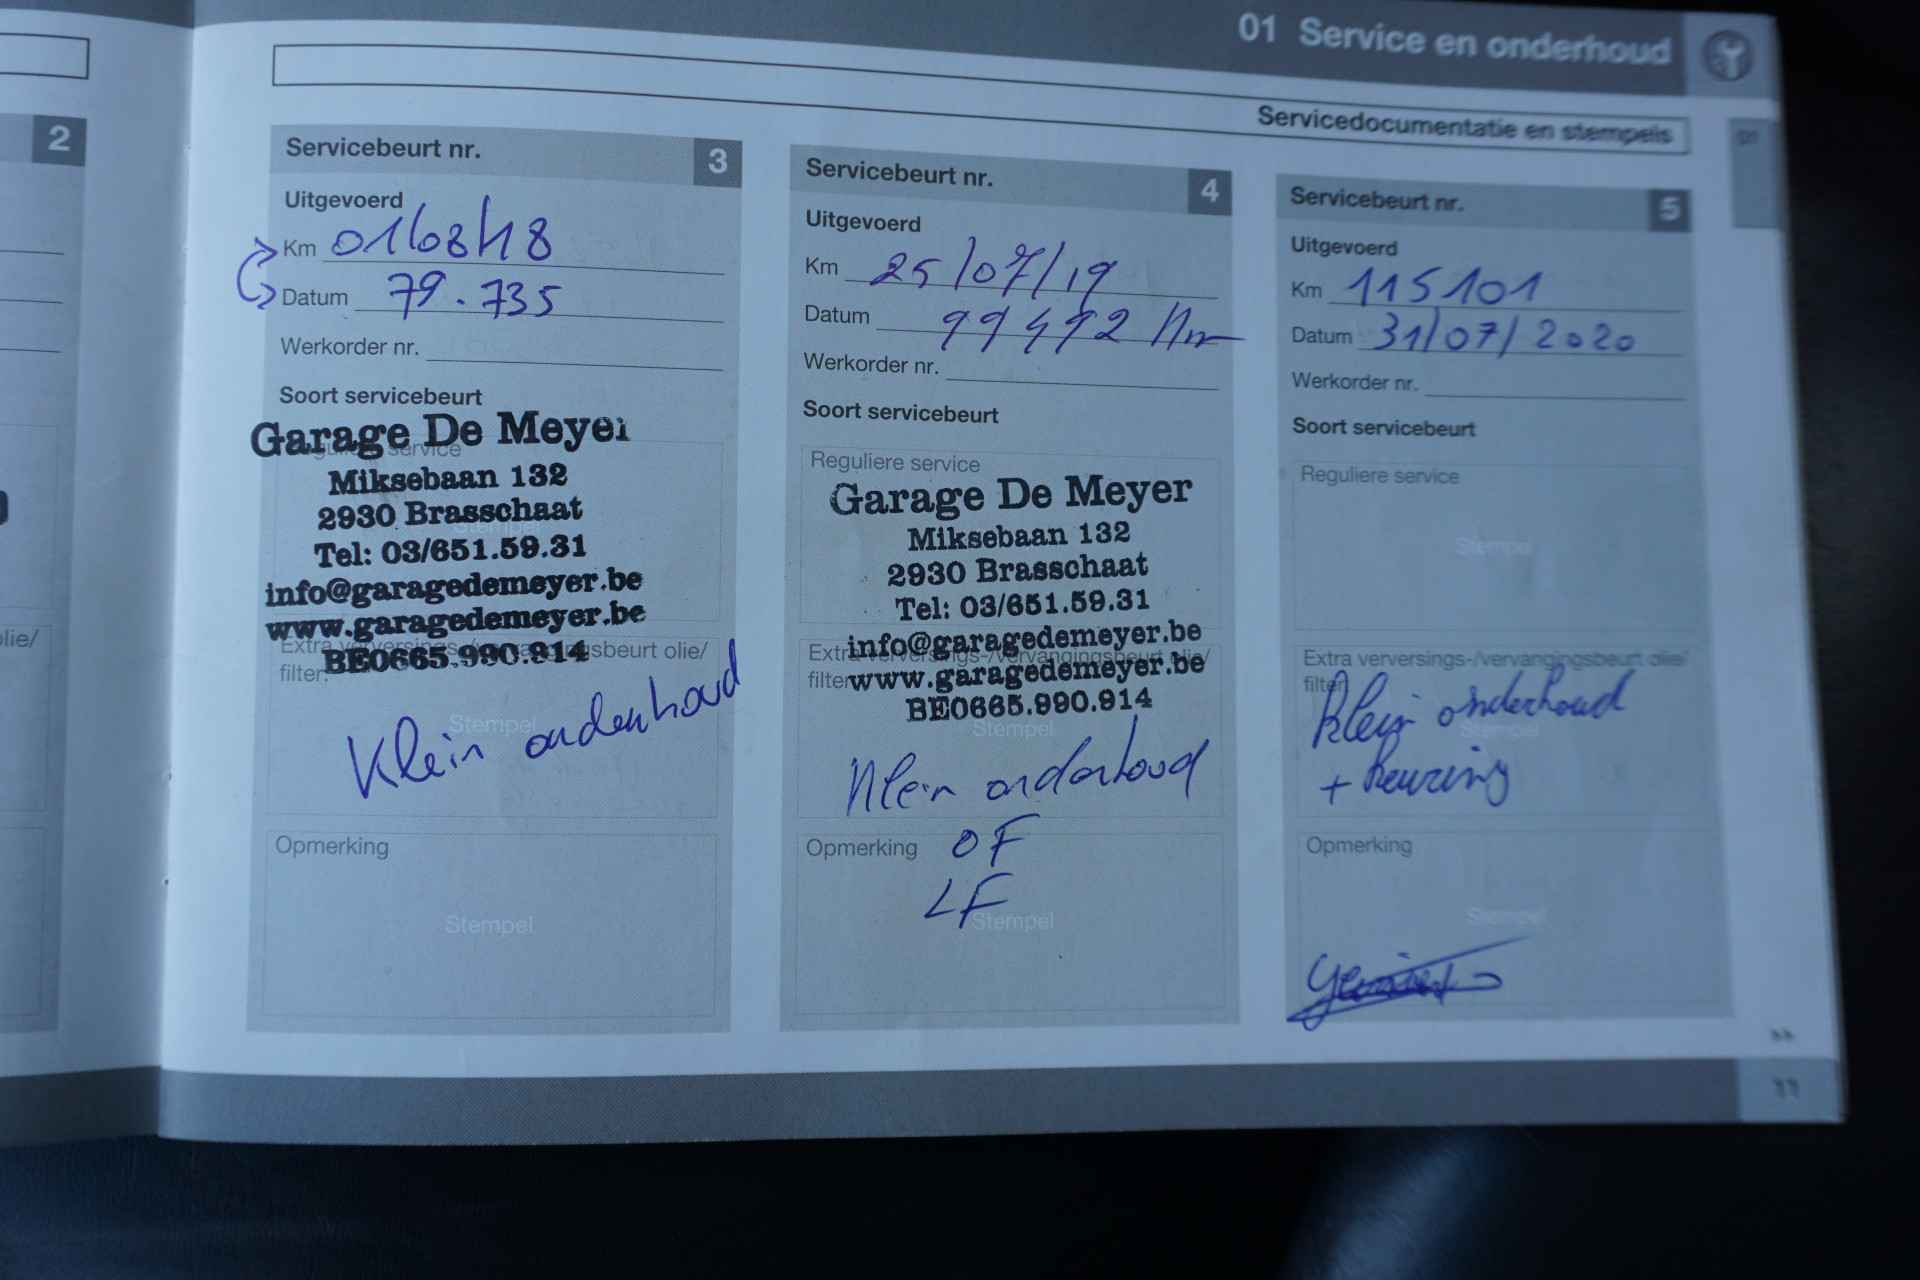 01 Service en onderhoud
Servicedocumentatie en stempels
01
2
lie/
Servicebeurt nr. 3
Uitgevoerd
Km
Datum 79.735
Werkorder nr.
Soort servicebeurt
Garage De Meyer
Miksebaan 132
2930 Brasschaat
Stempel
Tel: 03/651.59.31
info@garagedemeyer.be
www.garagedemeyer.be
BE0665.990.914
filter
Klein onderhoud
Stempel
Opmerking
Stempel
Servicebeurt nr. 4
Uitgevoerd
Km 25/07/19
Datum 99492 Km
Werkorder nr.
Soort servicebeurt
Reguliere service
Garage De Meyer
Miksebaan 132
2930 Brasschaat
Tel: 03/651.59.31
info@garagedemeyer.be
Extra verversings-/vervangingsbeurt olie/
filter
www.garagedemeyer.be
BE0665.990.914
Stempel
Klein onderhoud
Opmerking OF
LF
Stempel
Servicebeurt nr. 5
Uitgevoerd
Km 115101
Datum 31/07/2020
Werkorder nr.
Soort servicebeurt
Reguliere service
Stempel
Extra verversings-/vervangingsbeurt olie/
filter
Klein onderhoud
Stempel
+ keuring
Opmerking
Stempel
11